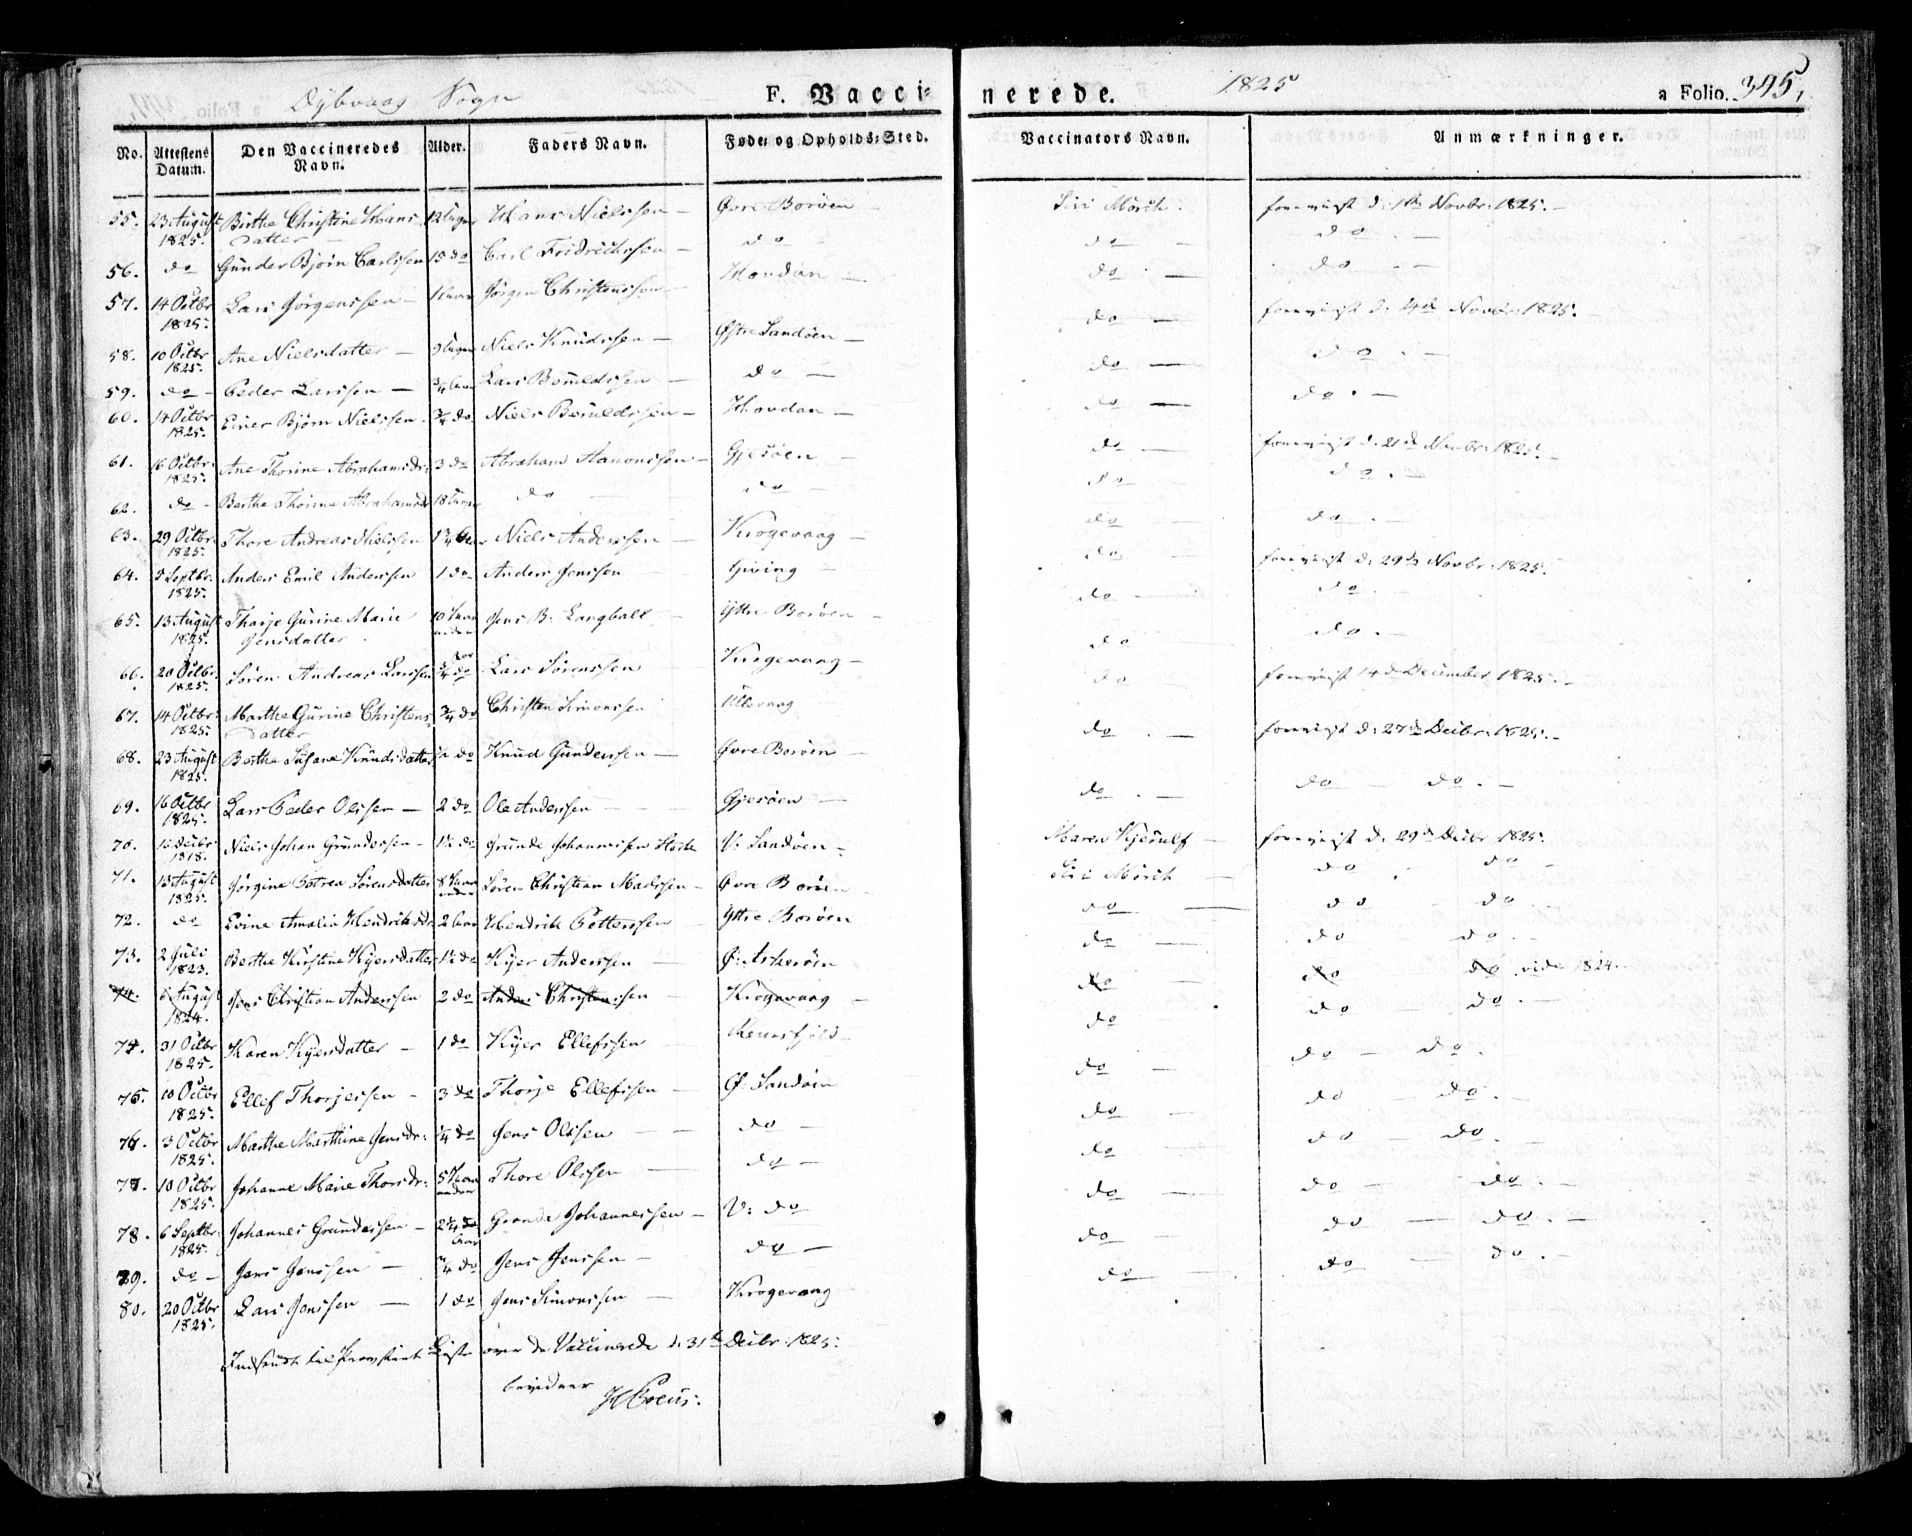 Dybvaag Sogn F. Vacci- nerede. 1825 a Folio. 395,
No. Attestens Datum. Den Vaccineredes Navn. Alder. Faders Navn. Føde- og Opholds-Sted. Vaccinators Navn. Anmærkninger.
55. 23 August 1825. Birthe Christine Hans datter 12 Uger Hans Nielssen — Øvre Borøen Siri Mörch. foreviist d: 1te Novbr: 1825. —
56. do Gunder Bjørn Carlssen 15 do Carl Fridrichssen — do do — do. —
57. 14 Octbr 1825. Lars Jörgenssen — 1 Jørgen Christenssen — Hovdan — do. — do. —
58. 10 Octbr 1825. Ane Nielsdatter — 9 Uger Niels Knudssen — Østre Sandøen — do — foreviist d: 4de Novbr: 1825. —
59. do — Peder Larssen — 3/4 Lars — do — do — do. —
60. 14 Octbr 1825. Einer Bjørn Nielssen. 3/4 do Niels — Hovdan — do — do. —
61. 16 Octbr. 1825. Ane Thorine Abrahamsdr: 3 do Abraham Aanonssen — Gjesöen — do — foreviist d: 21de Novbr: 1825. —
62. do — Berthe Thorine Abrahamsdr 18 do — do — do — do. —
63. 29 Octbr. 1825. Thore Andreas Nielssen 1 3/4 Niels Anderssen — Krogevaag — do — do. —
64. 5 Septbr. 1825. Anders Emil Anderssen 1 do Anders Jenssen Giving — do — foreviist d: 29de Novbr: 1825.
65. 13 August 1825. Tharje Gurine Marie Jensdatter. 10 Jens B. Langball Yttre Borøen — do — do. —
66. 20 Octbr. 1825. Sören Andreas Larssen 3/4 do Lars Sörenssen Krogevaag — do — do. —
67. 14 Octbr: 1825. Marthe Gurine Christens datter 3/4 do Christen Simonssen Ulevaag do — foreviist 14de December 1825. —
68. 23 August 1825. Berthe Susane Knudsdatter 1/2 do Knud Gunderssen — Øvre Borøen — do. — foreviist d: 27de Decbr: 1825. —
69. 16 Octbr 1825. Lars Peder Olssen — 2 do Ole Anderssen — Gjesöen — do. — do — do. —
70. Decbr 1818. Niels Johan Grunderssen — 1 1/2 do Grunde Johannessen V: Sandøen — Maren Kjerulf — foreviist d: 29de Decbr 1825.
71. 13 August 1825. Jørgine Petrea Sörensdatter 8 Sören Christian Madssen — Øvre Borøen — Siri Mörch — do do —
72. do Evine Amalia Hendriksdr 2 Hendrik Petterssen — Yttre Borøen do — do — do. —
73. 2 Juli 1823. Berthe Kirstine Kijersdatter 1 1/2 do Kijer Anderssen — Ø: Askerøen do — do — do. —
74. 6 August 1824. Jens Christian Anderssen 2 do Anders Christenssen — Krogevaag — do — do do vide 1824. —
74. 31 Octbr 1825. Karen Kijersdatter — 1 do Kijer Ellefssen do — do — do. —
75. 10 Octbr 1825. Ellef Thorjerssen — 3 do Thorje Ellefssen — Ø: Sandøen do — do — do.
76. 3 Octbr 1825. Marthe Marthine Jensdr: 1/4 do Jens Olssen — do — do — do — do. —
77. 10 Octbr 1825. Johanne Marie Thorsdr: 5 Thore Olssen — do — do — do — do.
78. 6 Septbr. 1825. Johannes Grunderssen — 2 1/4 Grunde Johannessen — V: do do — do — do. —
79. do — Jens Jenssen — 3/4 do Jens Jenssen — do — do — do — do. —
80. 20 Octbr 1825. Lars Jenssen — 1 do Jens Simonssen — Krogevaag do — do — do. —
Indsendt til Provstiet Liste over de Vaccinerede d: 31te Decbr: 1825.
bevidner